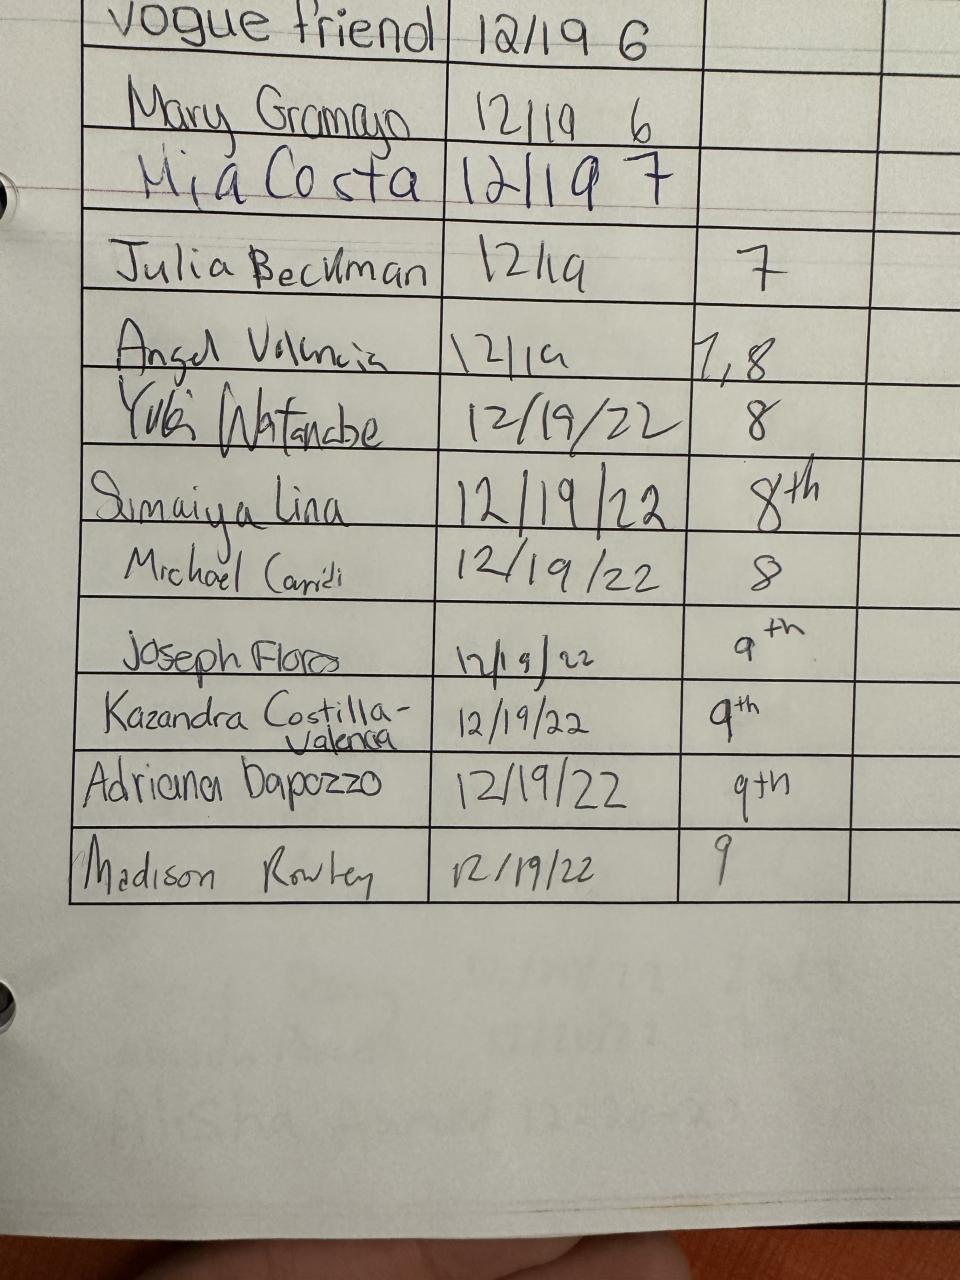 vogue friend 12/19 6
Mary Gramajo 12/19 6
Mia Costa 12/19 7
Julia Beckman 12/19 7
Angel Valencia 12/19 7,8
Yuki Watanabe 12/19/22 8
Sumaiya Lina 12/19/22 8th
Michael Caridi 12/19/22 8
Joseph Flores 12/19/22 9th
Kazandra Costilla- 12/19/22 9th
Valencia
Adriana Dapozzo 12/19/22 9th
Madison Rowley 12/19/22 9